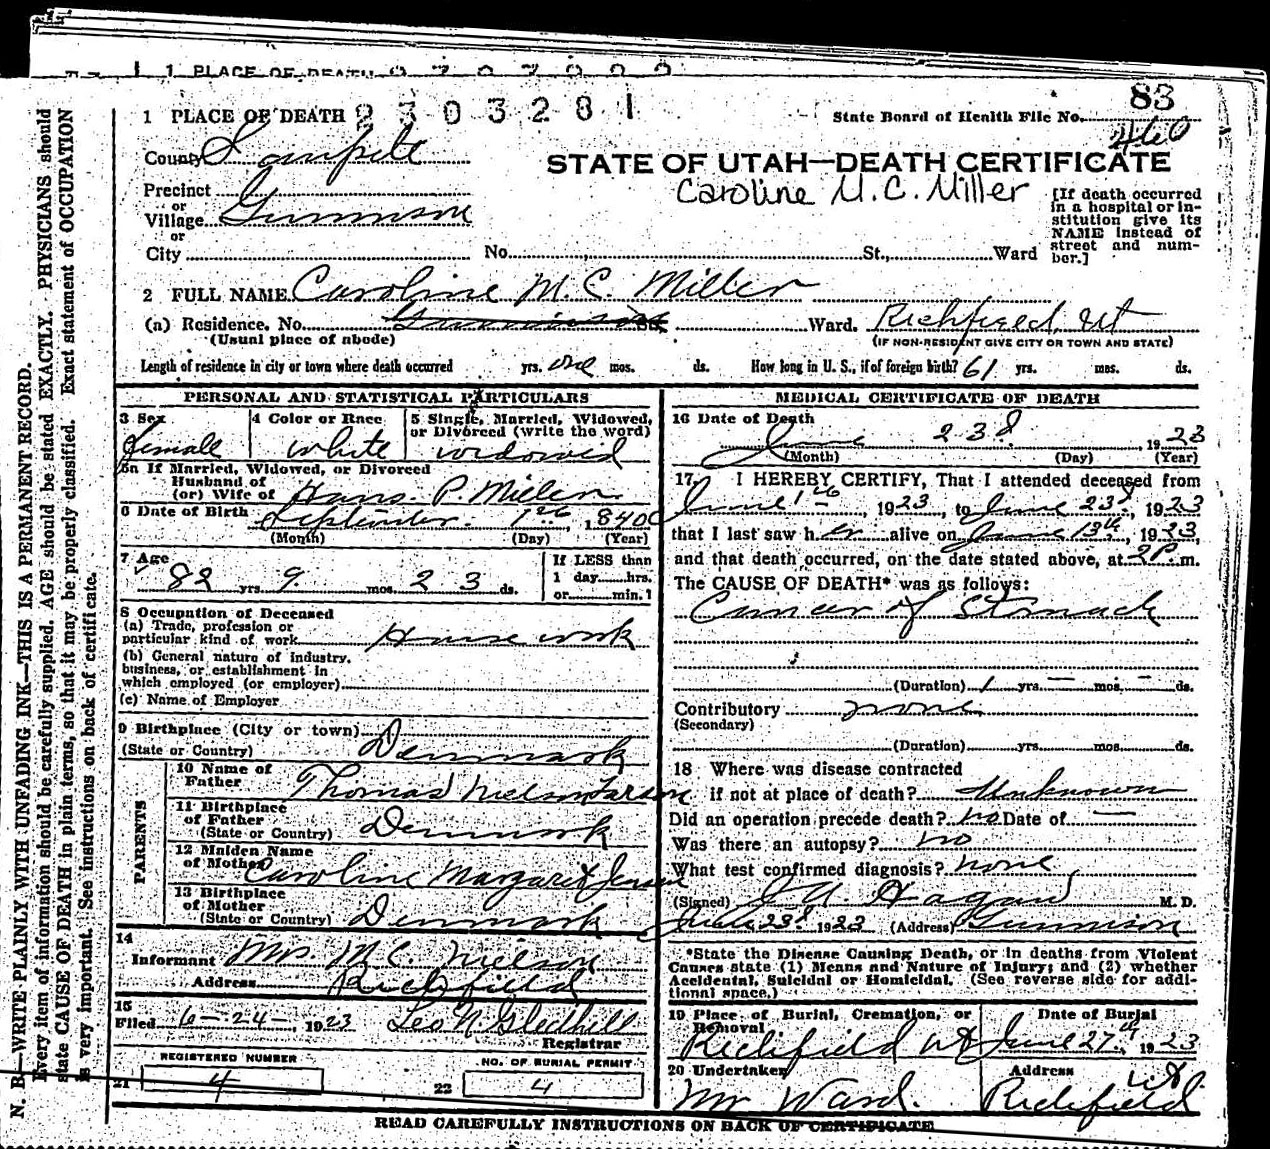 1 PLACE OF DEATH
83
1 PLACE OF DEATH 2303281
State Board of Health File No.
460
County Sanpete
STATE OF UTAH—DEATH CERTIFICATE
Caroline M.C. Miller
Precinct
or
Village Gunnison
or
City
No. St., Ward
[If death occurred
in a hospital or in-
stitution give its
NAME instead of
street and num-
ber.]
2 FULL NAME Caroline M. C. Miller
(a) Residence. No. Gunnison St. Ward. Richfield, Ut
(Usual place of abode)
(IF NON-RESIDENT GIVE CITY OR TOWN AND STATE)
Length of residence in city or town where death occurred yrs. one mos. ds. How long in U. S., if of foreign birth? 61 yrs. mos. ds.
PERSONAL AND STATISTICAL PARTICULARS
3 Sex
female
4 Color or Race
white
5 Single, Married, Widowed,
or Divorced (write the word)
widowed
5a If Married, Widowed, or Divorced
Husband of
(or) Wife of Hans. P. Miller
6 Date of Birth September 1st, 1840
(Month) (Day) (Year)
7 Age
82 yrs. 9 mos. 23 ds.
If LESS than
1 day......hrs.
or......min.?
8 Occupation of Deceased
(a) Trade, profession or
particular kind of work House work
(b) General nature of industry,
business, or establishment in
which employed (or employer)
(c) Name of Employer
9 Birthplace (City or town)
(State or Country) Denmark
PARENTS
10 Name of
Father Thomas Nielson Larson
11 Birthplace
of Father
(State or Country) Denmark
12 Maiden Name
of Mother Caroline Margaret Jensen
13 Birthplace
of Mother
(State or Country) Denmark
14
Informant Mrs. M.C. Nielson
Address Richfield
15
Filed 6-24-, 1923 Leo N Gledhill
Registrar
REGISTERED NUMBER
21 4
NO. OF BURIAL PERMIT
22 4
MEDICAL CERTIFICATE OF DEATH
16 Date of Death
June 23d, 1923
(Month) (Day) (Year)
17. I HEREBY CERTIFY, That I attended deceased from
June 1st, 1923, to June 23d, 1923
that I last saw her alive on June 13th, 1923,
and that death occurred, on the date stated above, at 2 P. m.
The CAUSE OF DEATH* was as follows:
Cancer of Stomach
(Duration) 1 yrs. — mos. — ds.
Contributory none
(Secondary)
(Duration) yrs. mos. ds.
18 Where was disease contracted
if not at place of death? Unknown
Did an operation precede death? no Date of —
Was there an autopsy? no
What test confirmed diagnosis? none
(Signed) Hagan M. D.
June 23d 1923 (Address) Gunnison
*State the Disease Causing Death, or in deaths from Violent
Causes state (1) Means and Nature of Injury; and (2) whether
Accidental, Suicidal or Homicidal. (See reverse side for addi-
tional space.)
19 Place of Burial, Cremation, or
Removal
Richfield Ut
Date of Burial
June 27th, 1923
20 Undertaker
Mr Ward.
Address
Richfield Ut.
READ CAREFULLY INSTRUCTIONS ON BACK OF CERTIFICATE
N. B.—WRITE PLAINLY WITH UNFADING INK—THIS IS A PERMANENT RECORD.
Every item of information should be carefully supplied. AGE should be stated EXACTLY. PHYSICIANS should
state CAUSE OF DEATH in plain terms, so that it may be properly classified. Exact statement of OCCUPATION
is very important. See instructions on back of certificate.